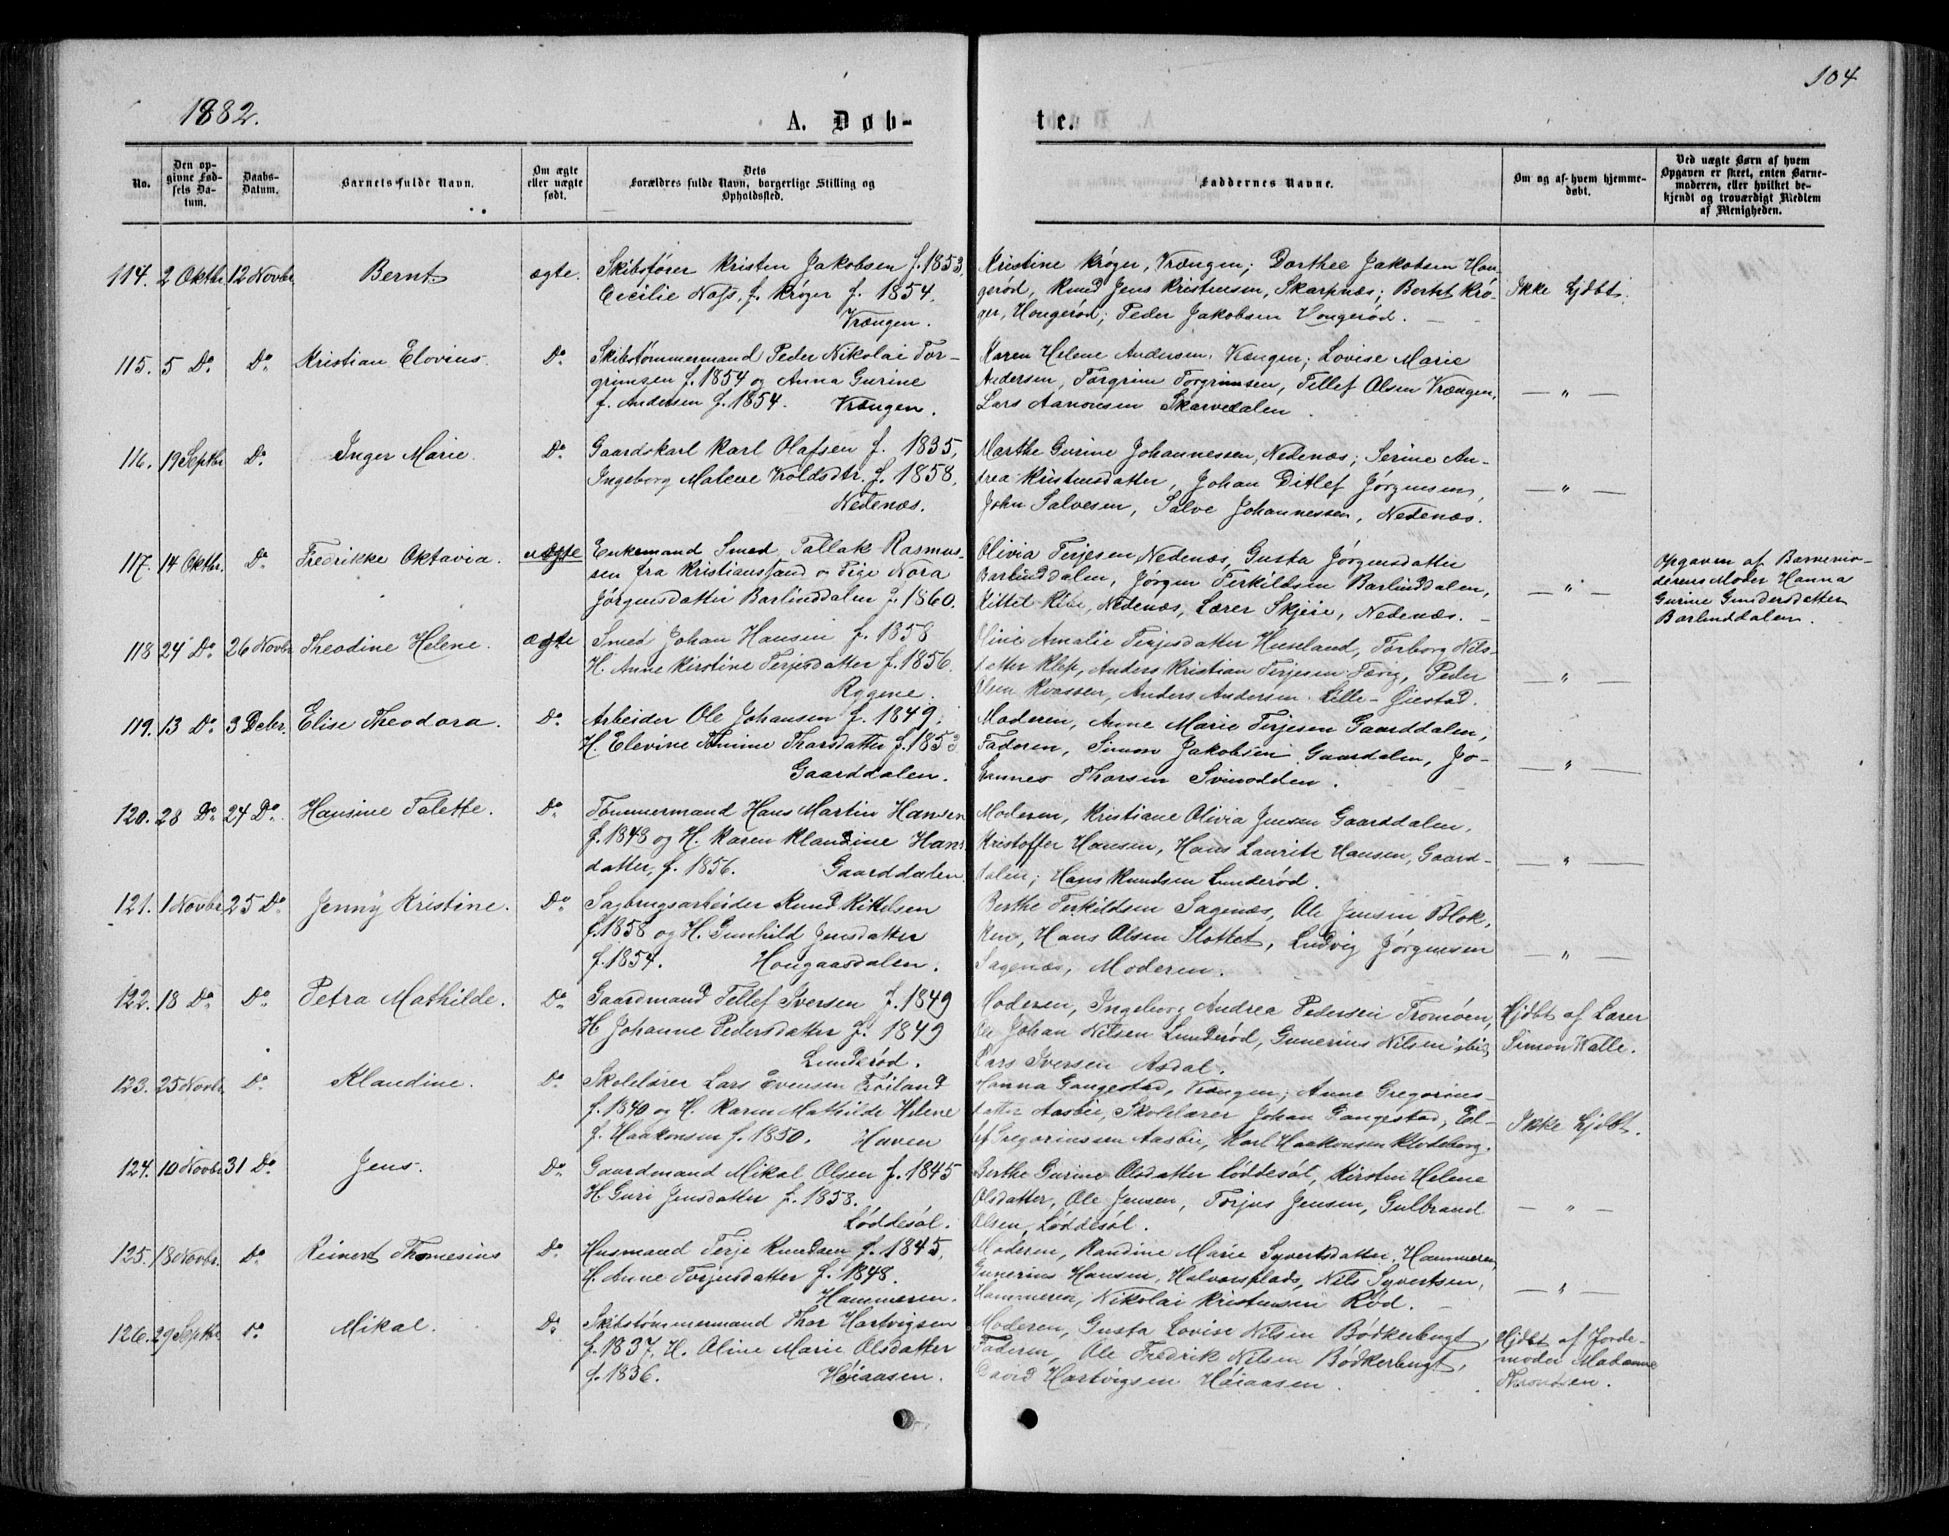 104
1882.
A. Døb-
te.
No.
Den opgivne Fødsels Datum.
Daabs-Datum.
Barnets fulde Navn.
Om ægte eller uægte født.
Dets Forældres fulde Navn, borgerlige Stilling og Opholdssted.
Faddernes Navne.
Om og af hvem hjemmedøbt.
Ved uægte Børn af hvem Opgaven er skeet, enten Barnemoderen, eller hvilket bekjendt og troværdigt Medlem af Menigheden.
114. 2 Oktbr 12 Novbr Bernt ægte.
Skibsfører Kristen Jakobsen f. 1853,
Cecilie Næss, f. Krøger f. 1854.
Vrængen.
Kristine Krøger, Vrængen; Dorthee Jakobsen Hon-
gerød, Knud Jens Kristensen, Skarpnæs; Berte Krø-
ger, Hongerød; Peder Jakobsen Hongerød.
Ikke hjdbt.
115. 5 Do Do Kristian Elovius. Do
Skibstømmermand Peder Nikolai Tor-
grimsen f. 1854 og Anna Gurine
f. Andersen f. 1854. Vrængen.
Karen Helene Andersen, Vrængen; Lovise Marie
Andersen, Torgrim Torgrimsen, Tellef Olsen Vrængen,
Lars Aanonsen Skarvedalen.
— " —
116. 19 Septbr Do. Inger Marie. Do
Gaardskarl Karl Olafsen f. 1835,
Ingeborg Malene Kroldsdtr. f. 1858.
Nedenæs.
Marthe Gurine Johannessen, Nedenæs; Serine An-
drea Kristensdatter, Johan Ditlef Jørgensen,
John Salvesen, Salve Johannessen, Nedenæs.
— " —
117. 14 Oktbr. Do. Fredrikke Oktavia. uægte
Enkemand Smed Tallak Rasmus-
sen fra Kristianssand og Pige Nora
Jørgensdatter Barlinddalen f. 1860.
Olivia Terjesen Nedenæs, Gusta Jørgensdatter
Barlinddalen, Jørgen Terkildsen Barlinddalen,
Kittel Ribe, Nedenæs, Lærer Skjeie, Nedenæs.
— " —
Opgaven af Barnemo-
derens Moder Hanna
Gurine Gundersdatter
Barlinddalen.
118 24 Do 26 Novbr Theodine Helene. ægte
Smed Johan Hansen f. 1858
H. Anne Kirstine Terjesdatter f. 1856.
Rygene.
Oline Amalie Terjesdatter Huseland, Torborg Nils-
datter Klep, Anders Kristian Terjesen Færvig, Peder
Olsen Kvassen, Anders Andersen Lille-Øiestad.
— " —
119. 13 Do 3 Debr. Elise Theodora. Do
Arbeider Ole Johansen f. 1849.
H. Elevine Amine Tharsdatter f. 1853
Gaarddalen.
Moderen, Anne Marie Terjesen Gaarddalen,
Faderen, Simon Jakobsen Gaardalen, Jo-
hannes Tharsen Svinodden.
— " —
120. 28 Do 24 Do. Hansine Talette. Do
Tømmermand Hans Martin Hansen
f. 1848 og H. Karen Klaudine Hans-
datter, f. 1856. Gaarddalen.
Moderen, Kristiane Olivia Jensen Gaarddalen,
Kristoffer Hansen, Hans Lauritz Hansen, Gaard-
dalen; Hans Knudsen Lunderød.
— " —
121. 1 Novbr 25 Do Jenny Kristine. Do
Sagbrugsarbeider Knud Kittelsen
f. 1858 og H. Gunhild Jensdatter
f. 1854. Hougaasdalen.
Berthe Terkildsen Sagenæs, Ole Jensen Blok-
ken, Hans Olsen Slottet, Ludvig Jørgensen
Sagenæs, Moderen.
— " —
122. 18 Do Do. Petra Mathilde. Do
Gaardmand Tellef Iversen f. 1849
H Johanne Pedersdatter f. 1849
Lunderød.
Moderen, Ingeborg Andrea Pedersen Tromøen,
Ole Johan Nilsen Lunderød, Gunerius Nilsen ibid,
Lars Iversen Asdal.
Hjdbt af Lærer
Simon Kalle.
123. 25 Novbr Do. Klaudine. Do
Skolelærer Lars Evensen Frøiland
f. 1840 og H. Karen Mathilde Helene
f. Haakonsen f. 1850. Haven
Hanna Gangestad, Vrængen; Anne Gregorius-
datter Aasbie, Skolelærer Johan Gangestad, El-
lef Gregoriussen Aasbie, Karl Haakonsen Klodeborg.
Ikke hjdbt.
124. 10 Novbr 31 Do Jens. Do
Gaardmand Mikal Olsen f. 1845
H Guri Jensdatter f. 1858.
Løddesøl.
Berthe Gurine Olsdatter Løddesøl, Kirsten Helene
Olsdatter, Ole Jensen, Torjus Jensen, Gulbrand
Olsen, Løddesøl.
— " —
125. 18 Novbr. Do Reinert Thomesius Do
Husmand Terje Knudsen f. 1845,
H. Anne Torjusdatter f. 1848.
Hammeren.
Moderen, Randine Marie Syvertsdatter, Hammeren,
Gunerius Hansen, Halvorsplads, Nils Syvertsen,
Hammeren, Nikolai Kristensen Rød.
— " —
126. 29 Septbr Do Mikal. Do
Skibstømmermand Thor Hartvigsen
f. 1837, H. Oline Marie Olsdatter
f. 1836. Høiaasen.
Moderen, Gusta Lovise Nilsen Bødkerbugt,
Faderen, Ole Fredrik Nilsen Bødkerbugt,
David Hartvigsen Høiaasen.
Hjdbt af Jorde-
moder Madame
Thronsen.